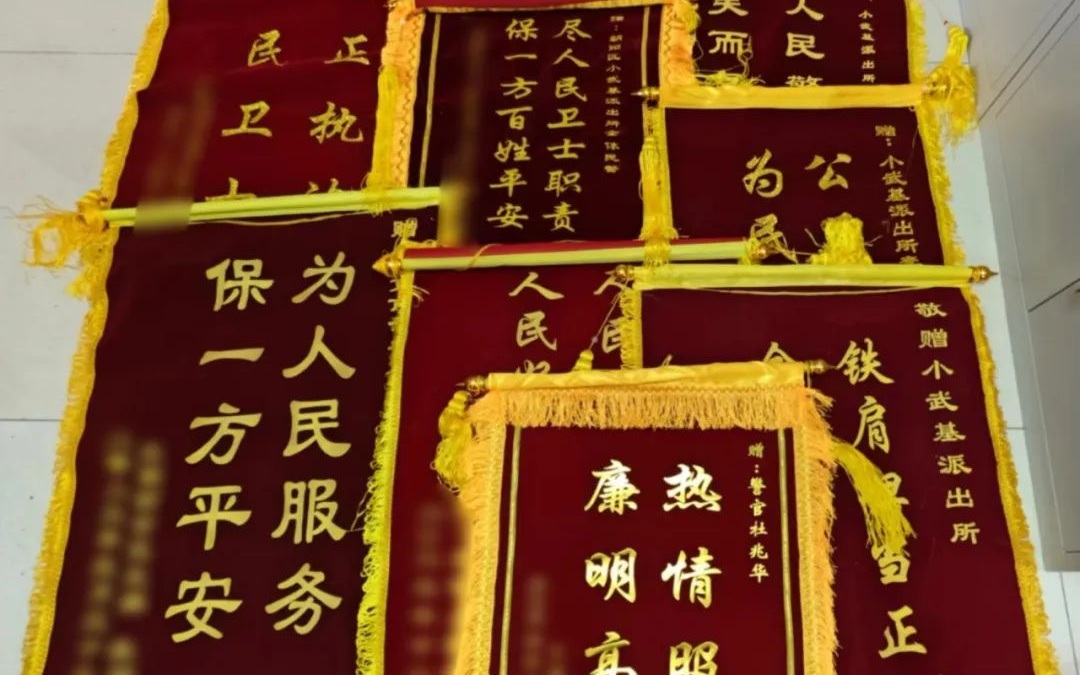 正执
民卫
赠:朝阳区小武基派出所全体民警
尽人民卫士职责
保一方百姓平安
小武基派出所
人民警
而
赠:小武基派出所
公
为民
赠
为人民服务
保一方平安
人民
人民
敬赠小武基派出所
铁肩当正
赠:警官杜兆华
热情照
廉明高